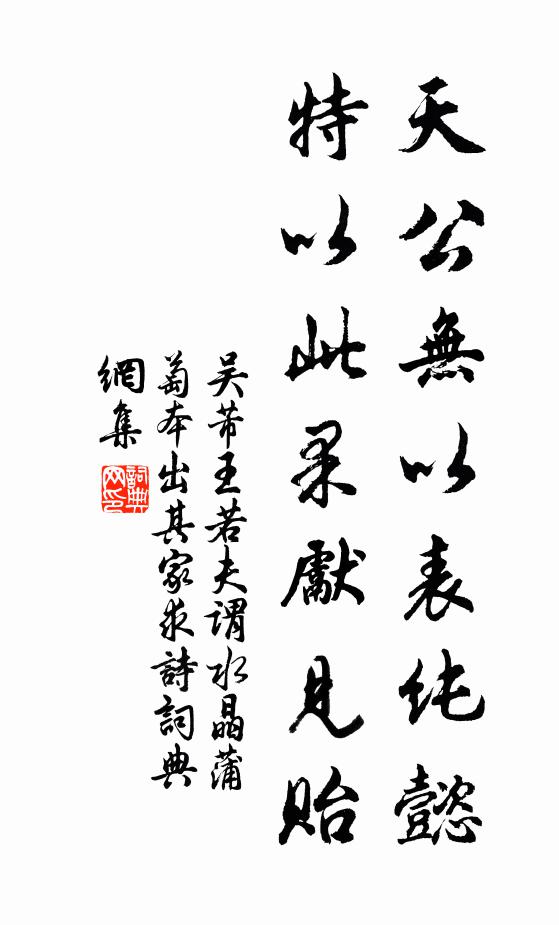 天公無以表純懿
特以此果獻見貽
吴芾王若夫謂水晶蒲
萄本出其家求詩詞典
網集
詞典網印